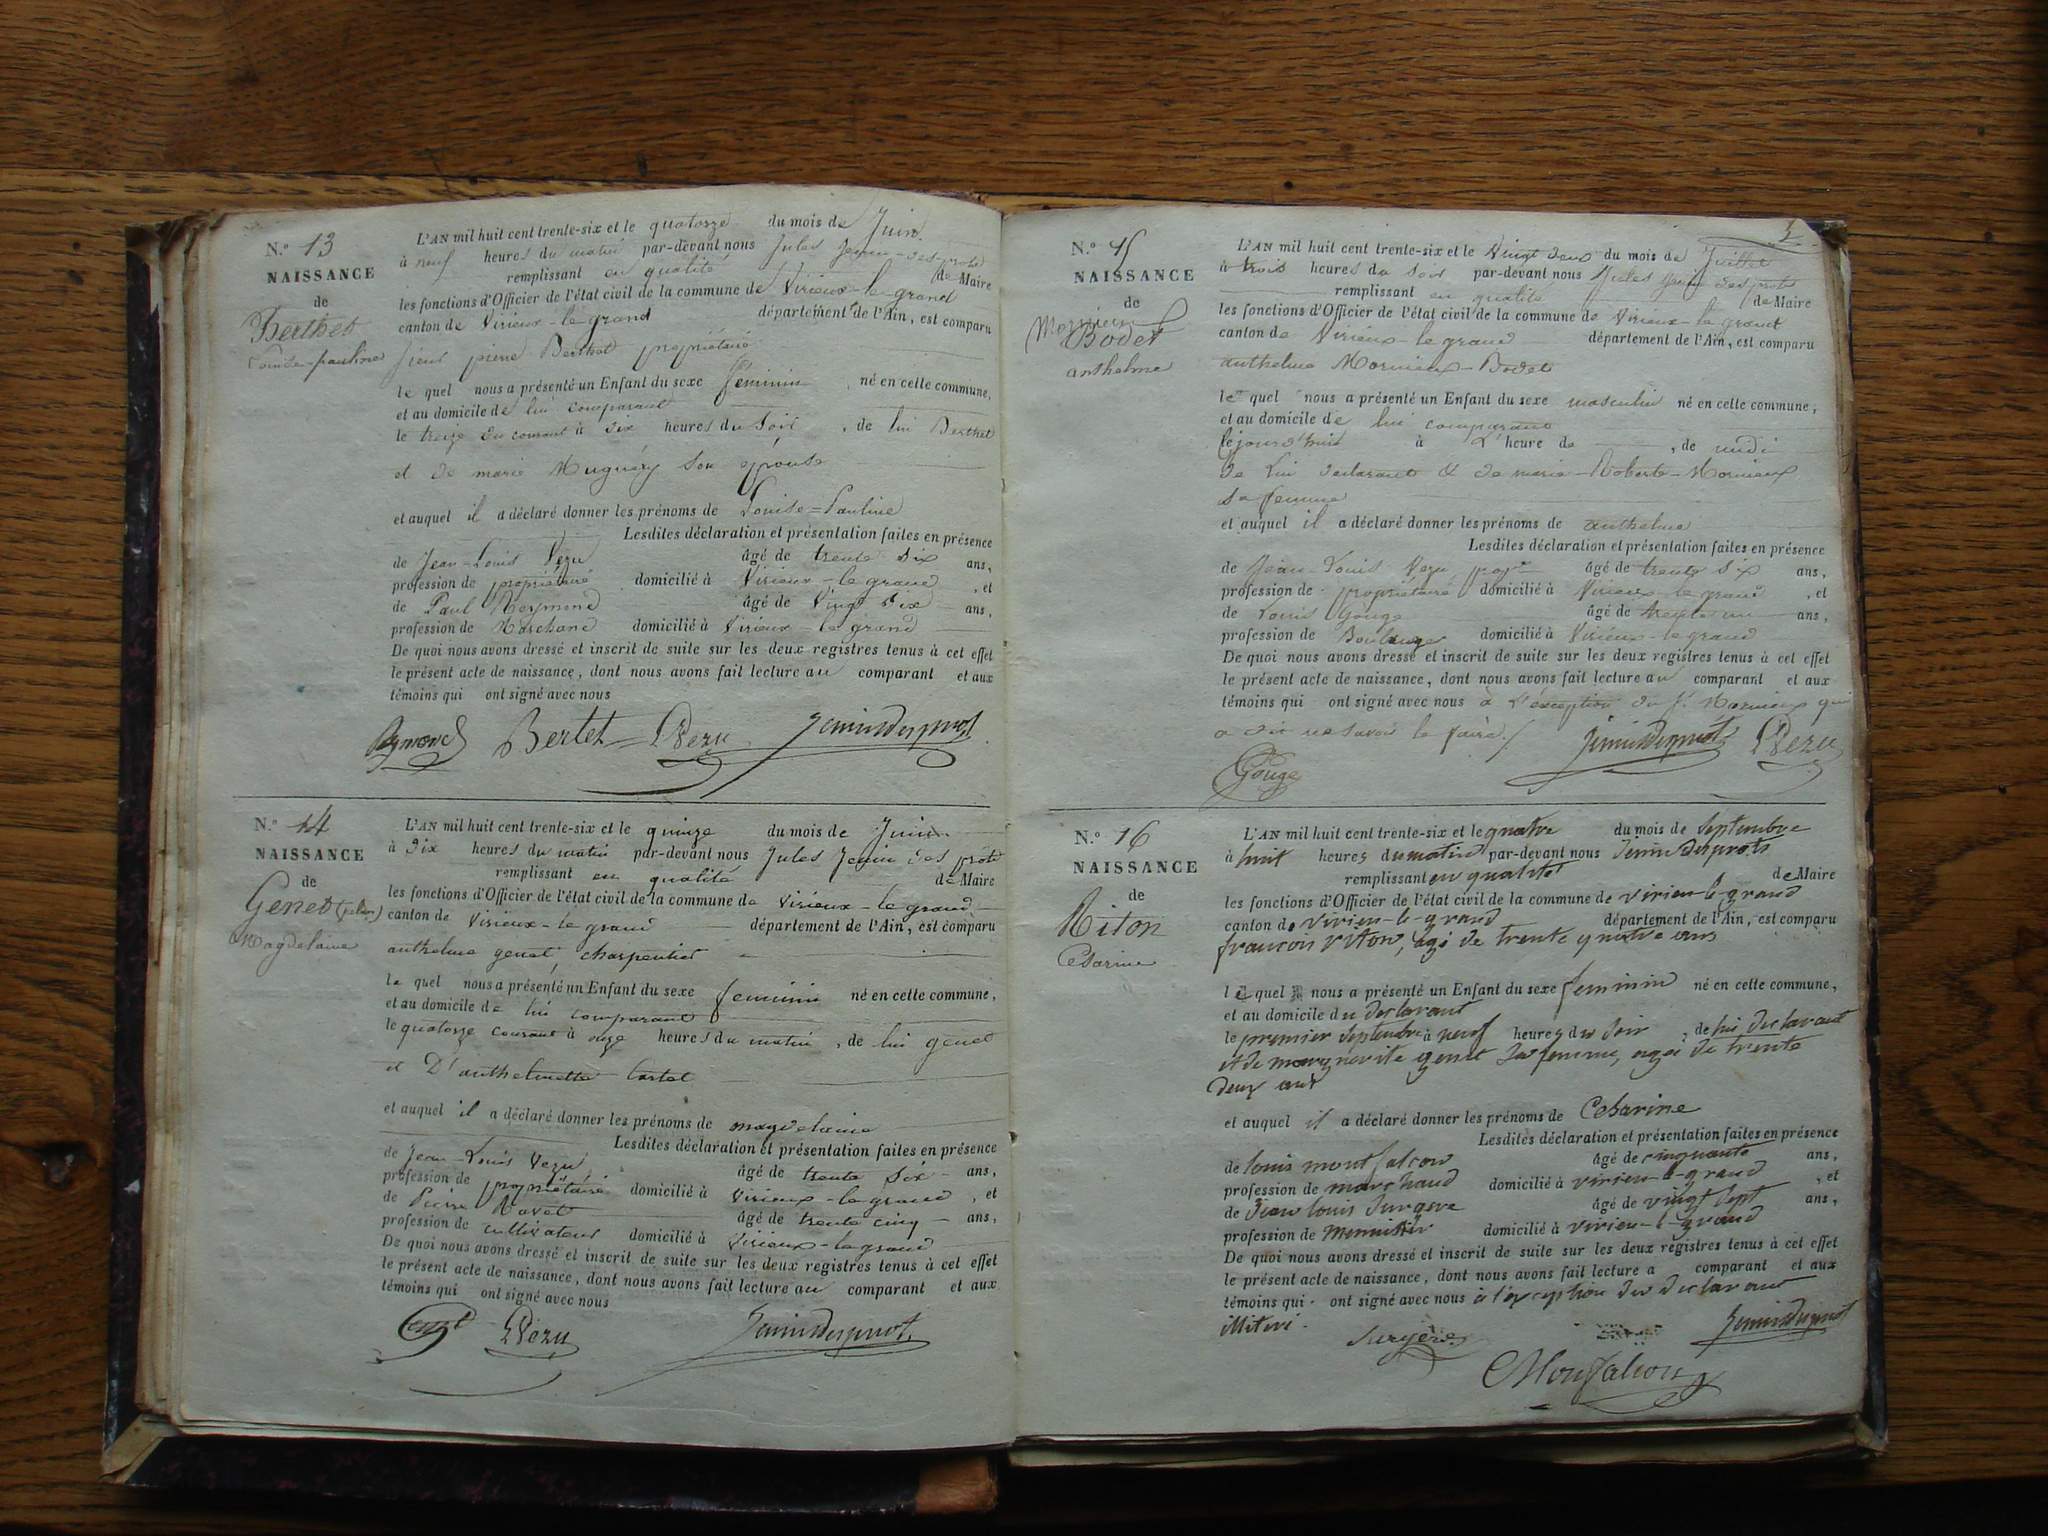 N.° 13
NAISSANCE
de
Berthet
Louise-pauline
L'AN mil huit cent trente-six et le quatorze du mois de Juin
à neuf heures du matin par-devant nous Jules Jenin-desprots
remplissant en qualité de Maire
les fonctions d'Officier de l'état civil de la commune de Virieux-le-grand
canton de Virieux-le-grand département de l'Ain, est comparu
sieur pierre Berthet propriétaire
le quel nous a présenté un Enfant du sexe féminin, né en cette commune,
et au domicile de lui comparant
le treize du courant à dix heures du soir, de lui Berthet
et de marie Muguéry son épouse
et auquel il a déclaré donner les prénoms de Louise=Pauline
Lesdites déclaration et présentation faites en présence
de Jean-Louis Vezu âgé de trente six ans,
profession de propriétaire domicilié à Virieux-le-grand, et
de Paul Reymond âgé de Vingt six ans,
profession de Marchand domicilié à Virieux-le-grand
De quoi nous avons dressé et inscrit de suite sur les deux registres tenus à cet effet
le présent acte de naissance, dont nous avons fait lecture au comparant et aux
témoins qui ont signé avec nous
Reymond Bertet LVezu Jenindesprots
N.° 14
NAISSANCE
de
Genet
Magdelaine
L'AN mil huit cent trente-six et le quinze du mois de Juin
à dix heures du matin par-devant nous Jules Jenin des prots
remplissant en qualité de Maire
les fonctions d'Officier de l'état civil de la commune de Virieux-le-grand
canton de Virieux-le grand département de l'Ain, est comparu
anthelme genet, charpentier
le quel nous a présenté un Enfant du sexe feminin né en cette commune,
et au domicile de lui comparant
le quatorze courant à onze heures du matin, de lui genet
et D'anthelmette Cartet
et auquel il a déclaré donner les prénoms de magdelaine
Lesdites déclaration et présentation faites en présence
de Jean-Louis Vezu âgé de trente six ans,
profession de propriétaire domicilié à Virieux-le grand, et
de Pierre Ravet âgé de trente cinq ans,
profession de cultivateur domicilié à Virieux-le grand
De quoi nous avons dressé et inscrit de suite sur les deux registres tenus à cet effet
le présent acte de naissance, dont nous avons fait lecture au comparant et aux
témoins qui ont signé avec nous
Genet LVezu Jenindesprots
5
N.° 15
NAISSANCE
de
Mornieux
Bodet
anthelme
L'AN mil huit cent trente-six et le Vingt deux du mois de Juillet
à trois heures du soir par-devant nous Jules Jenin desprots
remplissant en qualité de Maire
les fonctions d'Officier de l'état civil de la commune de Virieux-le grand
canton de Virieux-le grand département de l'Ain, est comparu
anthelme Mornieux-Bodet
le quel nous a présenté un Enfant du sexe masculin né en cette commune,
et au domicile de lui comparant
cejourd'hui à L'heure de, de midi
de Lui déclarant & de marie-Roberte-Mornieux
sa femme
et auquel il a déclaré donner les prénoms de anthelme
Lesdites déclaration et présentation faites en présence
de Jean-Louis Vezu propre âgé de trente six ans,
profession de propriétaire domicilié à Virieux-le-grand, et
de Louis Gouge âgé de trente un ans,
profession de Boulanger domicilié à Virieux-le grand
De quoi nous avons dressé et inscrit de suite sur les deux registres tenus à cet effet
le présent acte de naissance, dont nous avons fait lecture au comparant et aux
témoins qui ont signé avec nous à L'éxception du s.r Mornieux qui
a dit ne savoir le faire./
Jenindesprots LVezu
Gouge
N.° 16
NAISSANCE
de
Riton
Césarine
L'AN mil huit cent trente-six et le quatre du mois de septembre
à huit heures du matin par-devant nous Jenin desprots
remplissant en qualité de Maire
les fonctions d'Officier de l'état civil de la commune de virieu-le-grand
canton de virieu-le-grand département de l'Ain, est comparu
francois riton, âgé de trente quatre ans
le quel nous a présenté un Enfant du sexe feminin né en cette commune,
et au domicile du declarant
le premier septembre à neuf heures du soir, de lui declarant
et de margueritte genet sa femme, agée de trente
deux ans
et auquel il a déclaré donner les prénoms de Césarine
Lesdites déclaration et présentation faites en présence
de louis montfalcon âgé de cinquante ans,
profession de marchand domicilié à virieu-le-grand, et
de Jean louis Surgere âgé de vingt sept ans,
profession de menuisier domicilié à virieu-le-grand
De quoi nous avons dressé et inscrit de suite sur les deux registres tenus à cet effet
le présent acte de naissance, dont nous avons fait lecture a comparant et aux
témoins qui ont signé avec nous à l'exception du declarant
illitéré.
Surgère Jenindesprots
Monfalcon